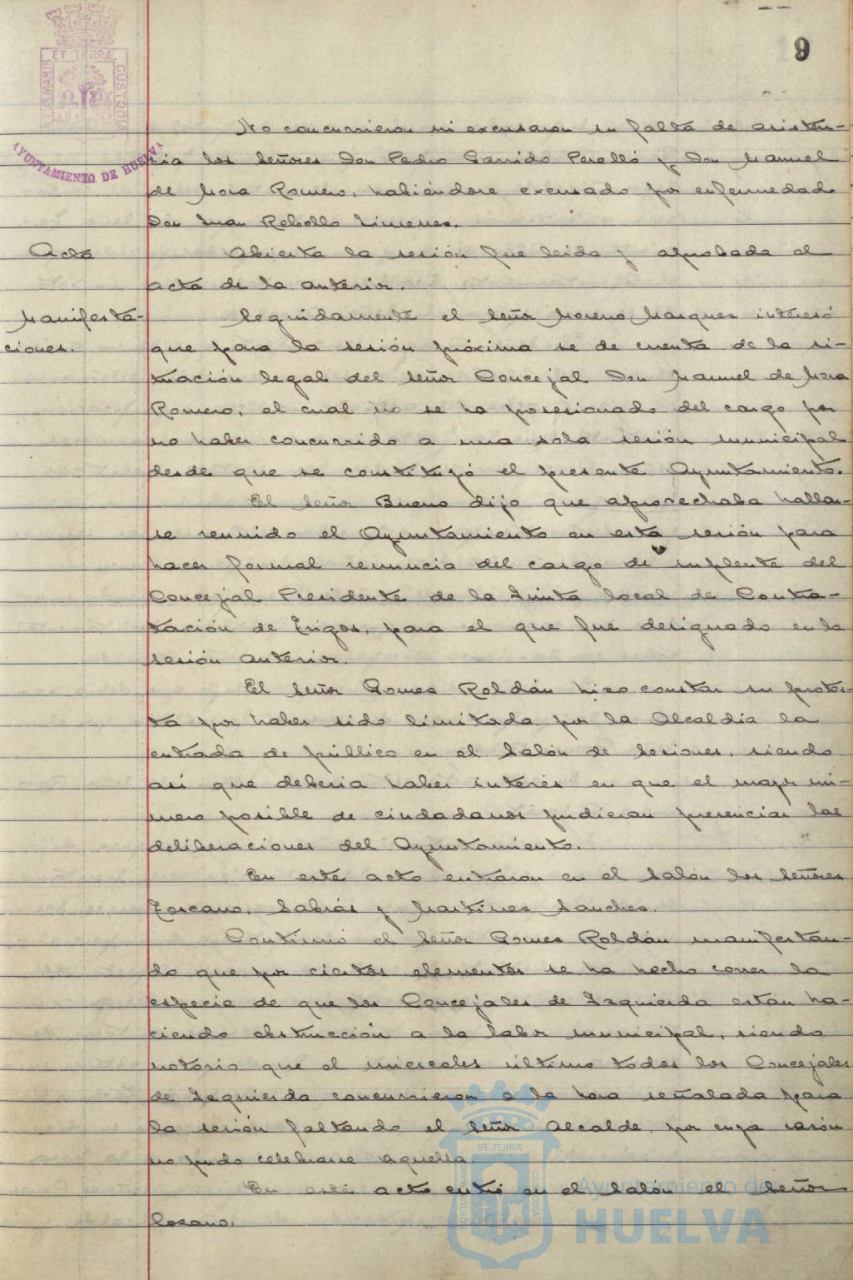 9
PORTUS MARIS ET TERRÆ CUSTODIA
AYUNTAMIENTO DE HUELVA
No concurrieron ni excusaron su falta de asisten-
cia los señores Don Pedro Garrido Perelló y Don Manuel
de Mora Romero, habiéndose excusado por enfermedad
Don Juan Rebollo Jimenez.
Acta
Abierta la sesión fue leida y aprobada el
acta de la anterior.
Manifesta-
ciones.
Seguidamente el señor Moreno Marquez interesó
que para la sesión próxima se de cuenta de la si-
tuación legal del señor Concejal Don Manuel de Mora
Romero, el cual no se ha posesionado del cargo por
no haber concurrido a una sola sesión municipal
desde que se constituyó el presente Ayuntamiento.
El señor Bueno dijo que aprovechaba hallar-
se reunido el Ayuntamiento en esta sesión para
hacer formal renuncia del cargo de suplente del
Concejal Presidente de la Junta local de Contra-
tación de Trigos, para el que fue designado en la
sesión anterior.
El señor Gomez Roldán hizo constar su protes-
ta por haber sido limitada por la Alcaldia la
entrada de público en el Salón de Sesiones, siendo
asi que deberia haber interés en que el mayor nú-
mero posible de ciudadanos pudieran presenciar las
deliberaciones del Ayuntamiento.
En este acto entraron en el Salón los señores
Toscano, Sabrás y Martinez Sanchez.
Continuó el señor Gomez Roldán manifestan-
do que por ciertos elementos se ha hecho correr la
especie de que los Concejales de Izquierda están ha-
ciendo obstrucción a la labor municipal, siendo
notorio que el miercoles último todos los Concejales
de Izquierda concurrieron a la hora señalada para
la sesión faltando el señor Alcalde, por cuya razón
no pudo celebrarse aquella.
En este acto entró en el Salón el señor
Lozano.
Ayuntamiento de
HUELVA